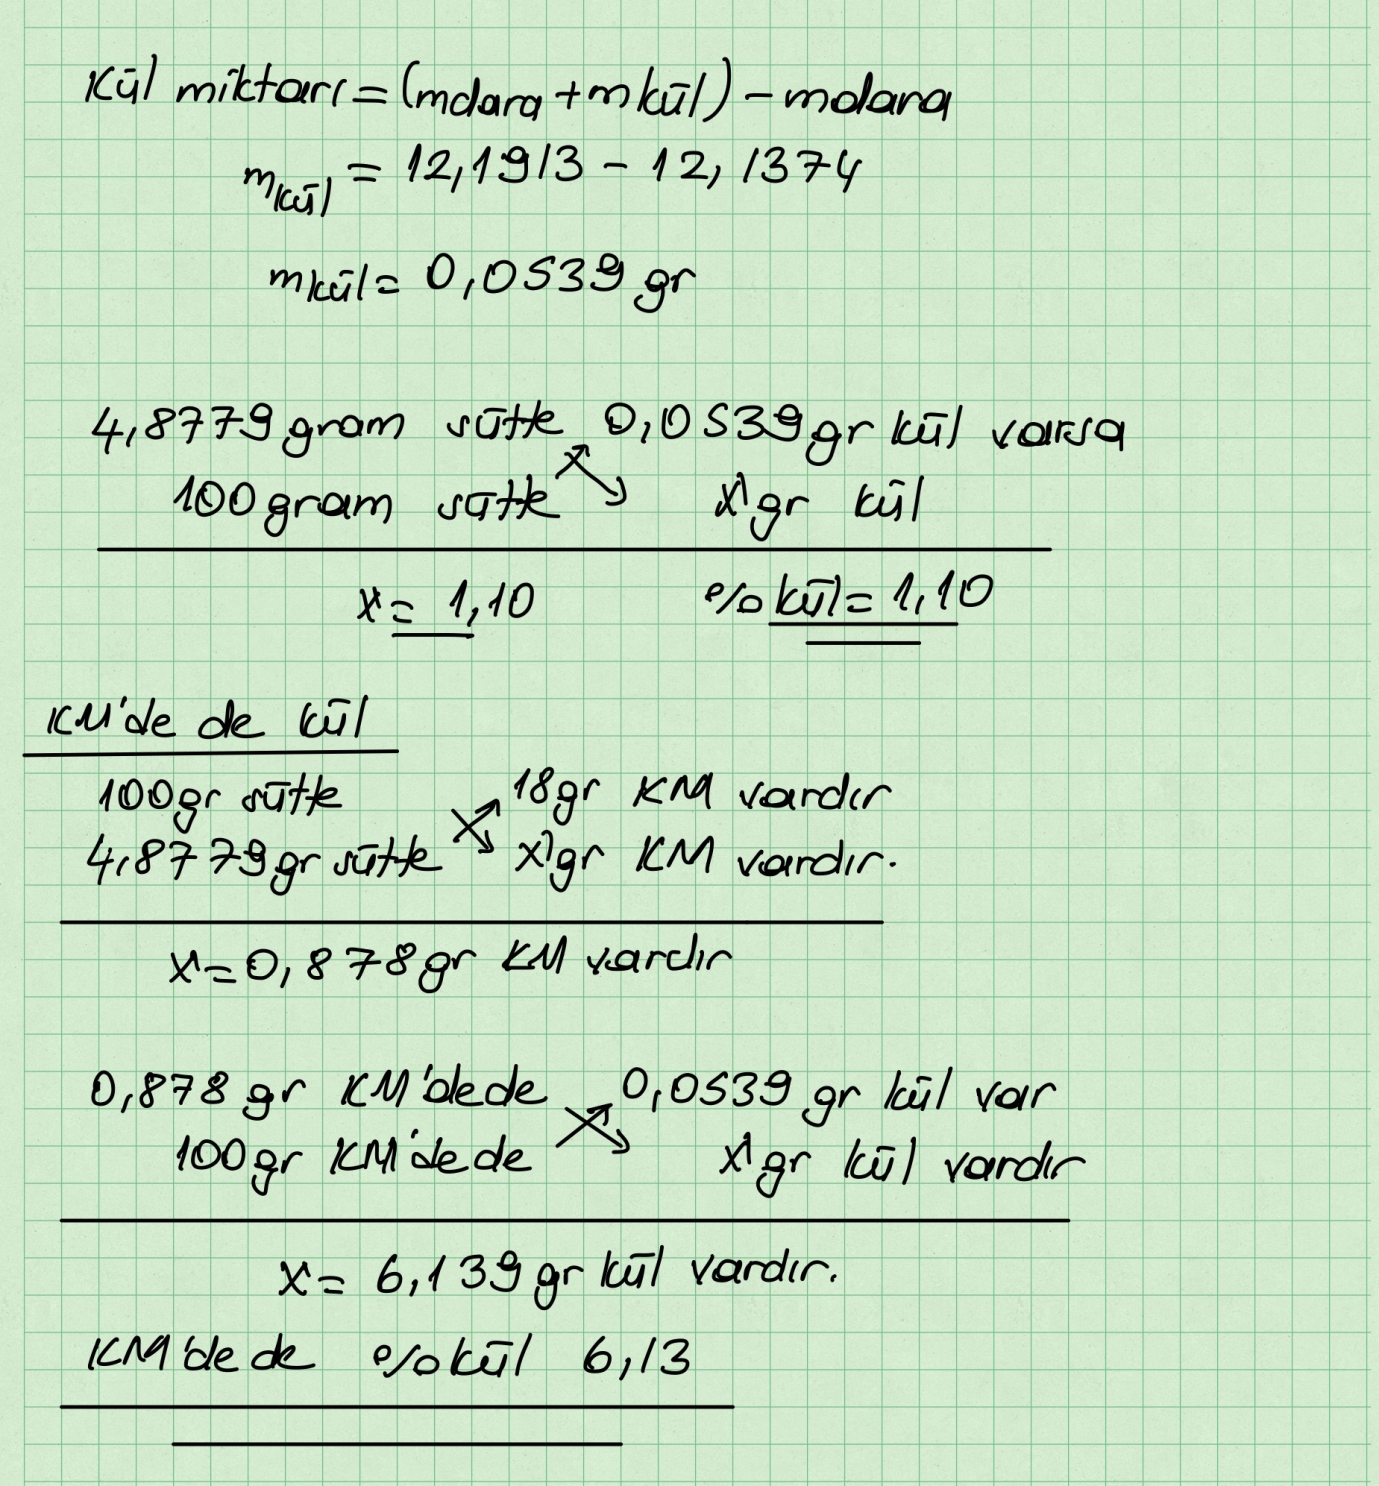 Kül miktarı = (mdara + mkül) - mdara
mkül = 12,1913 - 12,1374
mkül = 0,0539 gr
4,8779 gram sütte 0,0539 gr kül varsa
100 gram sütte x gr kül
x = 1,10 % kül = 1,10
KM'de de kül
100 gr sütte 18 gr KM vardır
4,8779 gr sütte x gr KM vardır.
x = 0,878 gr KM vardır
0,878 gr KM'dede 0,0539 gr kül var
100 gr KM'dede x gr kül vardır
x = 6,139 gr kül vardır.
KM'dede % kül 6,13